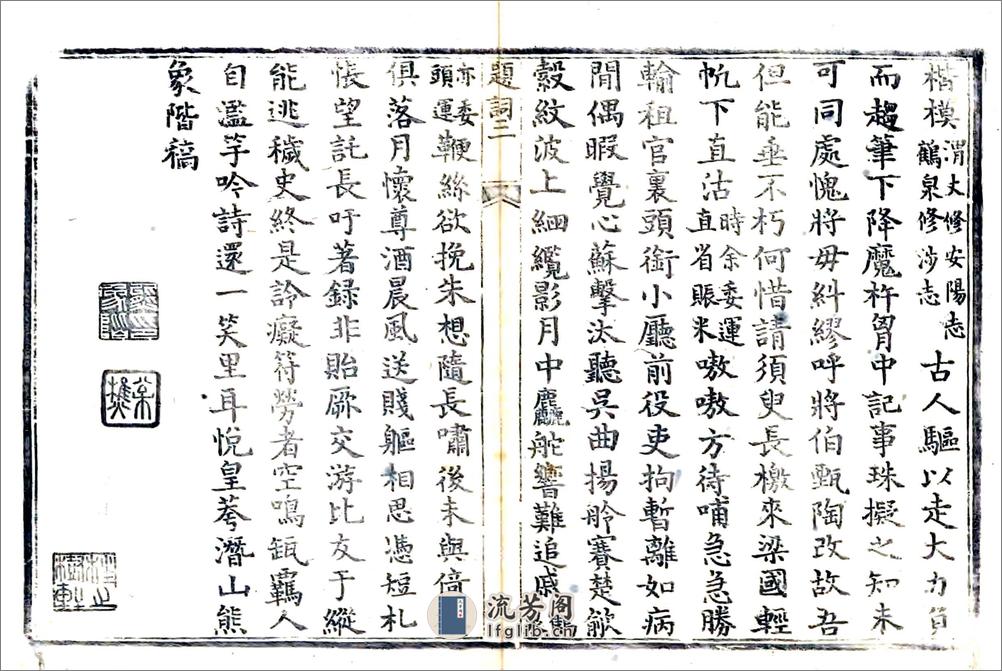 楷模渭丈修安陽志
鶴泉修涉志古人驅以走大力負
而趨筆下降魔杵胷中記事珠擬之知未
可同處愧將毋糾繆呼將伯甄陶改故吾
但能垂不朽何惜請須臾長檄來梁國輕
帆下直沽時余委運
直省賑米嗷嗷方待哺急急勝
輸租官裏頭銜小廳前役吏拘暫離如病
間偶暇覺心蘇擊汰聽吳曲揚舲賽楚歈
縠紋波上細纜影月中麤舵響難追戚
題詞二
亦委
頭運鞭絲欲挽朱想隨長嘯後未與偣
俱落月懷尊酒晨風送賤軀相思憑短札
悵望託長吁著錄非貽厥交游比友于縱
能逃穢史終是詅癡符勞者空鳴缻羈人
自濫竽吟詩還一笑里耳悅皇荂潛山熊
象階稿
流芳阁
lfglib.cn